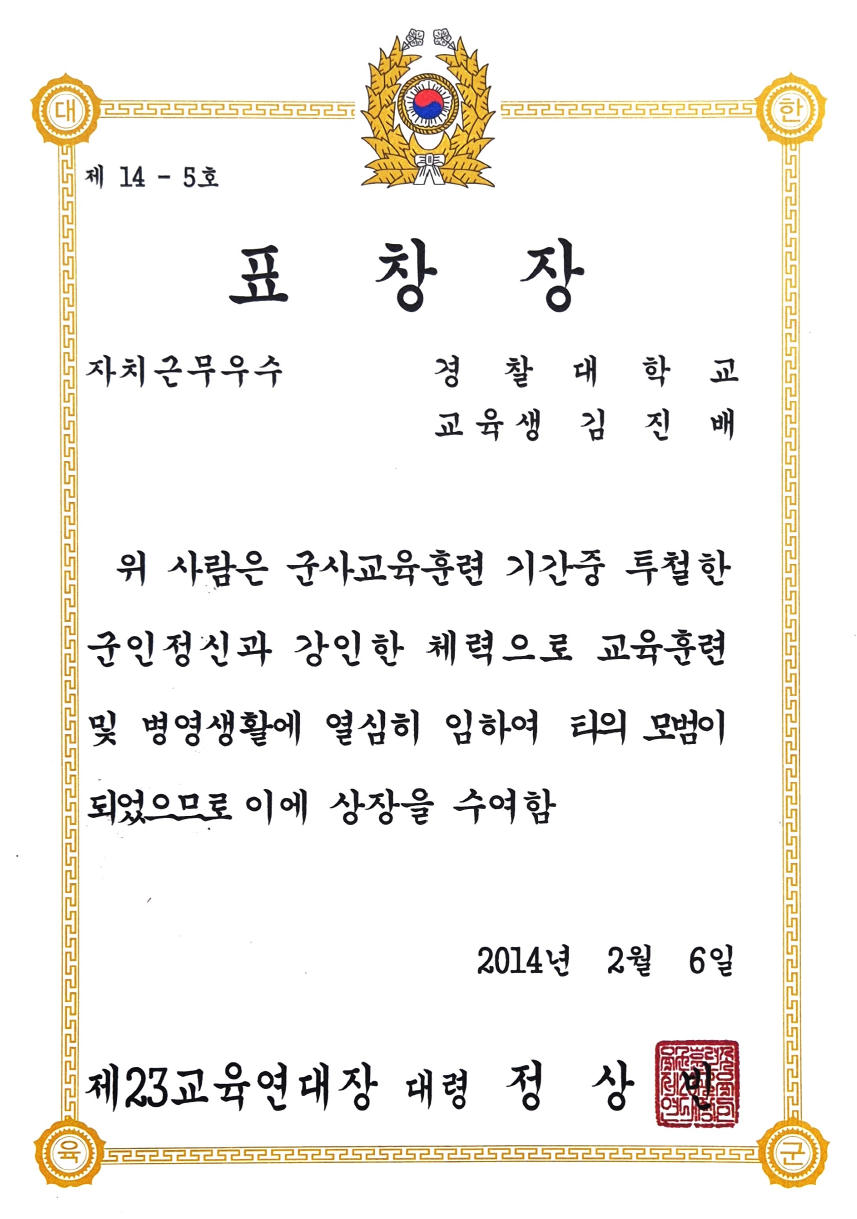 대 한
제 14 - 5호
표 창 장
자치근무우수 경 찰 대 학 교
교육생 김 진 배
위 사람은 군사교육훈련 기간중 투철한
군인정신과 강인한 체력으로 교육훈련
및 병영생활에 열심히 임하여 타의 모범이
되었으므로 이에 상장을 수여함
2014년 2월 6일
제23교육연대장 대령 정 상 빈
육 군